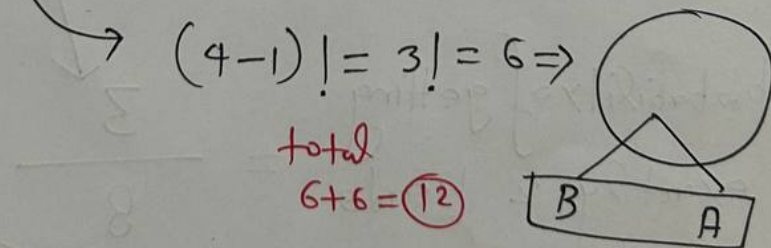 (4-1)! = 3! = 6 ⇒
total
6+6=12
B A
3
8